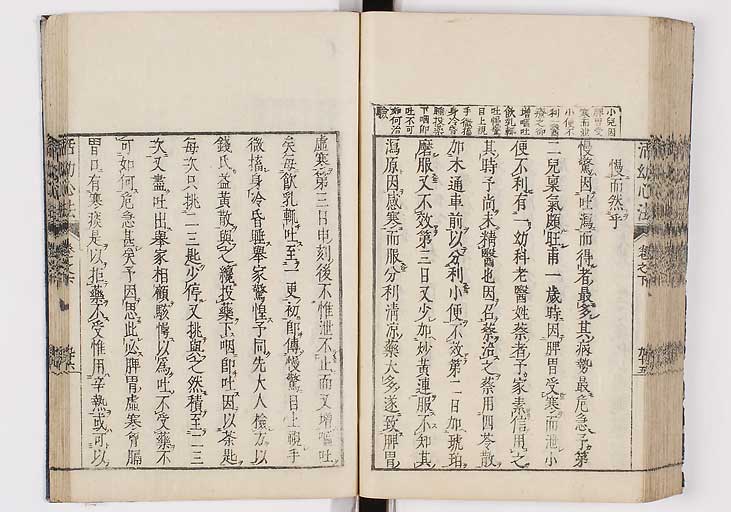 活幼心法
卷之下
慢而然乎
慢驚因吐瀉而得者最多其病勢最危急予第
二兒稟氣頗旺甫一歲時因脾胃受寒而泄小
便不利有一幼科老醫姓蔡者予家素信用之
其時予尚未精醫也因召蔡治之蔡用四苓散
加木通車前以分利小便不效第二日加琥珀
磨服又不效第三日又少加炒黃連服不知其
瀉原因感寒而服分利清涼藥大多遂致脾胃
小兒因
脾胃受
寒而泄
小便不
利醫
療之卻
增嘔吐
飲乳輒
吐慢驚
目上視
手微搐
身冷昏
睡投藥
下咽即
吐不可
如何治
驗
虛寒第三日申刻後不惟泄不止而又增嘔吐
矣每飲乳輒吐至一更初即傳慢驚目上視手
微搐身冷昏睡舉家驚惶予同先大人檢方以
錢氏益黃散與之纔投藥下咽即吐因以茶匙
每次只挑一二匙少停又挑與之然積至二三
次又盡吐出舉家相顧駭愕以為吐不受藥不
可如何危急甚矣予因思此必脾胃虛寒胷膈
胃口有寒痰是以拒藥不受惟用辛熱或可以
活幼心法
卷之下